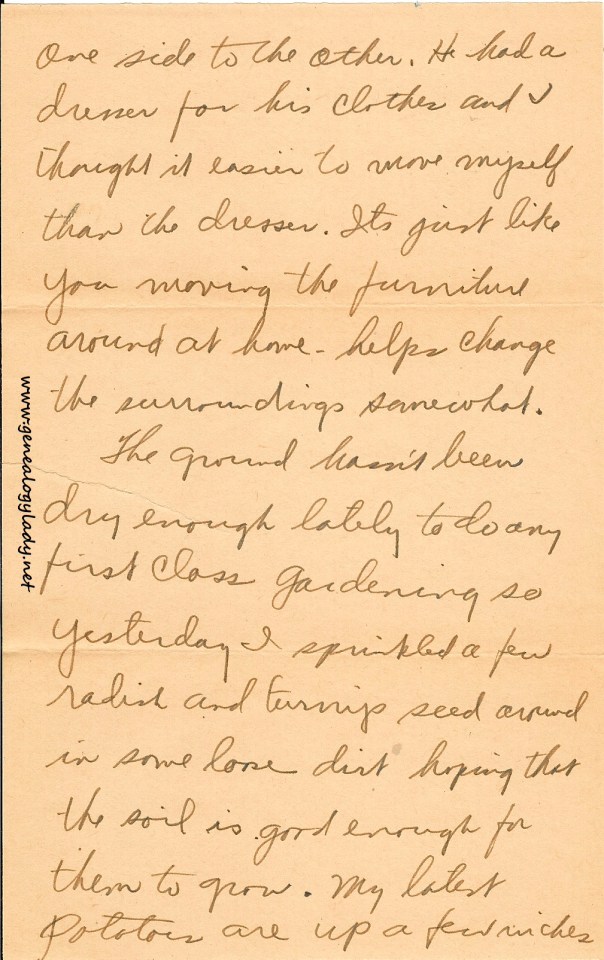 One side to the other. He had a
dresser for his clothes and I
thought it easier to move myself
than the dresser. Its just like
you moving the furniture
around at home - helps change
the surroundings somewhat.
The ground hasn't been
dry enough lately to do any
first class gardening so
yesterday I sprinkled a few
radish and turnip seed around
in some loose dirt hoping that
the soil is good enough for
them to grow. My latest
potatoes are up a few inches
www.genealogylady.net